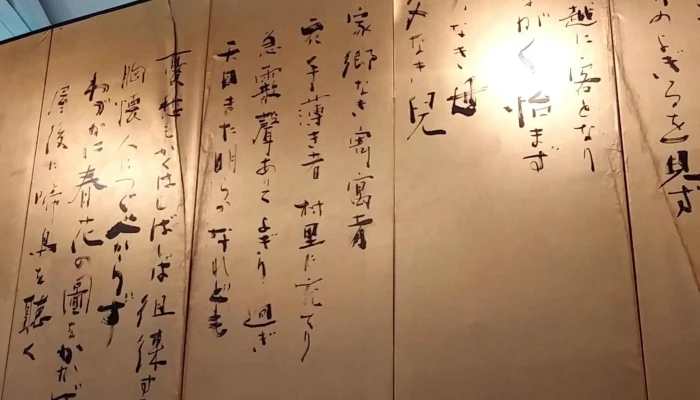 のよぎるを見ず
越に客となり
がく怡まず
なき母
なき児
家郷なき寄寓者
衣手薄き者 村里に充てり
急霰聲ありて よぎり過ぎ
天日また明らかなれども
憂愁もかくはしばしば往来す
胸懐人につぐべからず
わづかに春花の圖をかかげ
屋後に啼鳥を聴く